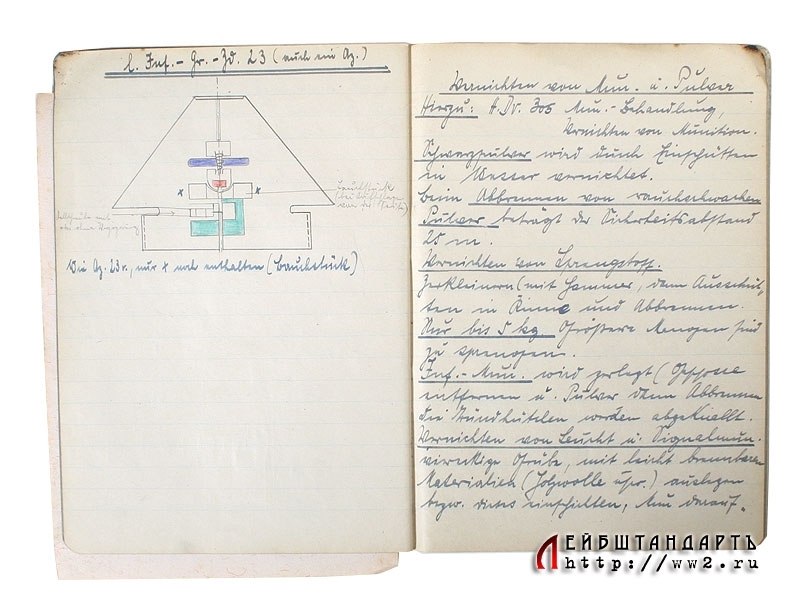 l. Inf.-Gr.-Zd. 23 (auch ein Az.)
x x
Bei Az. 23 r., nur x noch enthalten (Bauchstück)
Vernichten von Mun. u. Pulver
Hierzu: H.Dv. 305 Mun.-Behandlung,
Vernichten von Munition.
Schwarzpulver wird durch Einschütten
in Wasser vernichtet.
Beim Abbrennen von rauchschwachem
Pulver beträgt der Sicherheitsabstand
25 m.
Vernichten von Sprengstoff.
Zerkleinern (mit Hammer, dann Ausschüt-
ten in Rinne und Abbrennen.
Nur bis 5 kg. Größere Mengen sind
zu sprengen.
Inf.-Mun. wird zerlegt (Geschosse
entfernen u. Pulver dann Abbrennen
die Zündhütchen werden abgeknallt.
Vernichten von Leucht u. Signalmun.
viereckige Grube, mit leicht brennbaren
Materialien (Holzwolle usw.) auslegen
bezw. dieses einschütten, Mun darauf-
ЛЕЙБШТАНДАРТЪ
http://ww2.ru